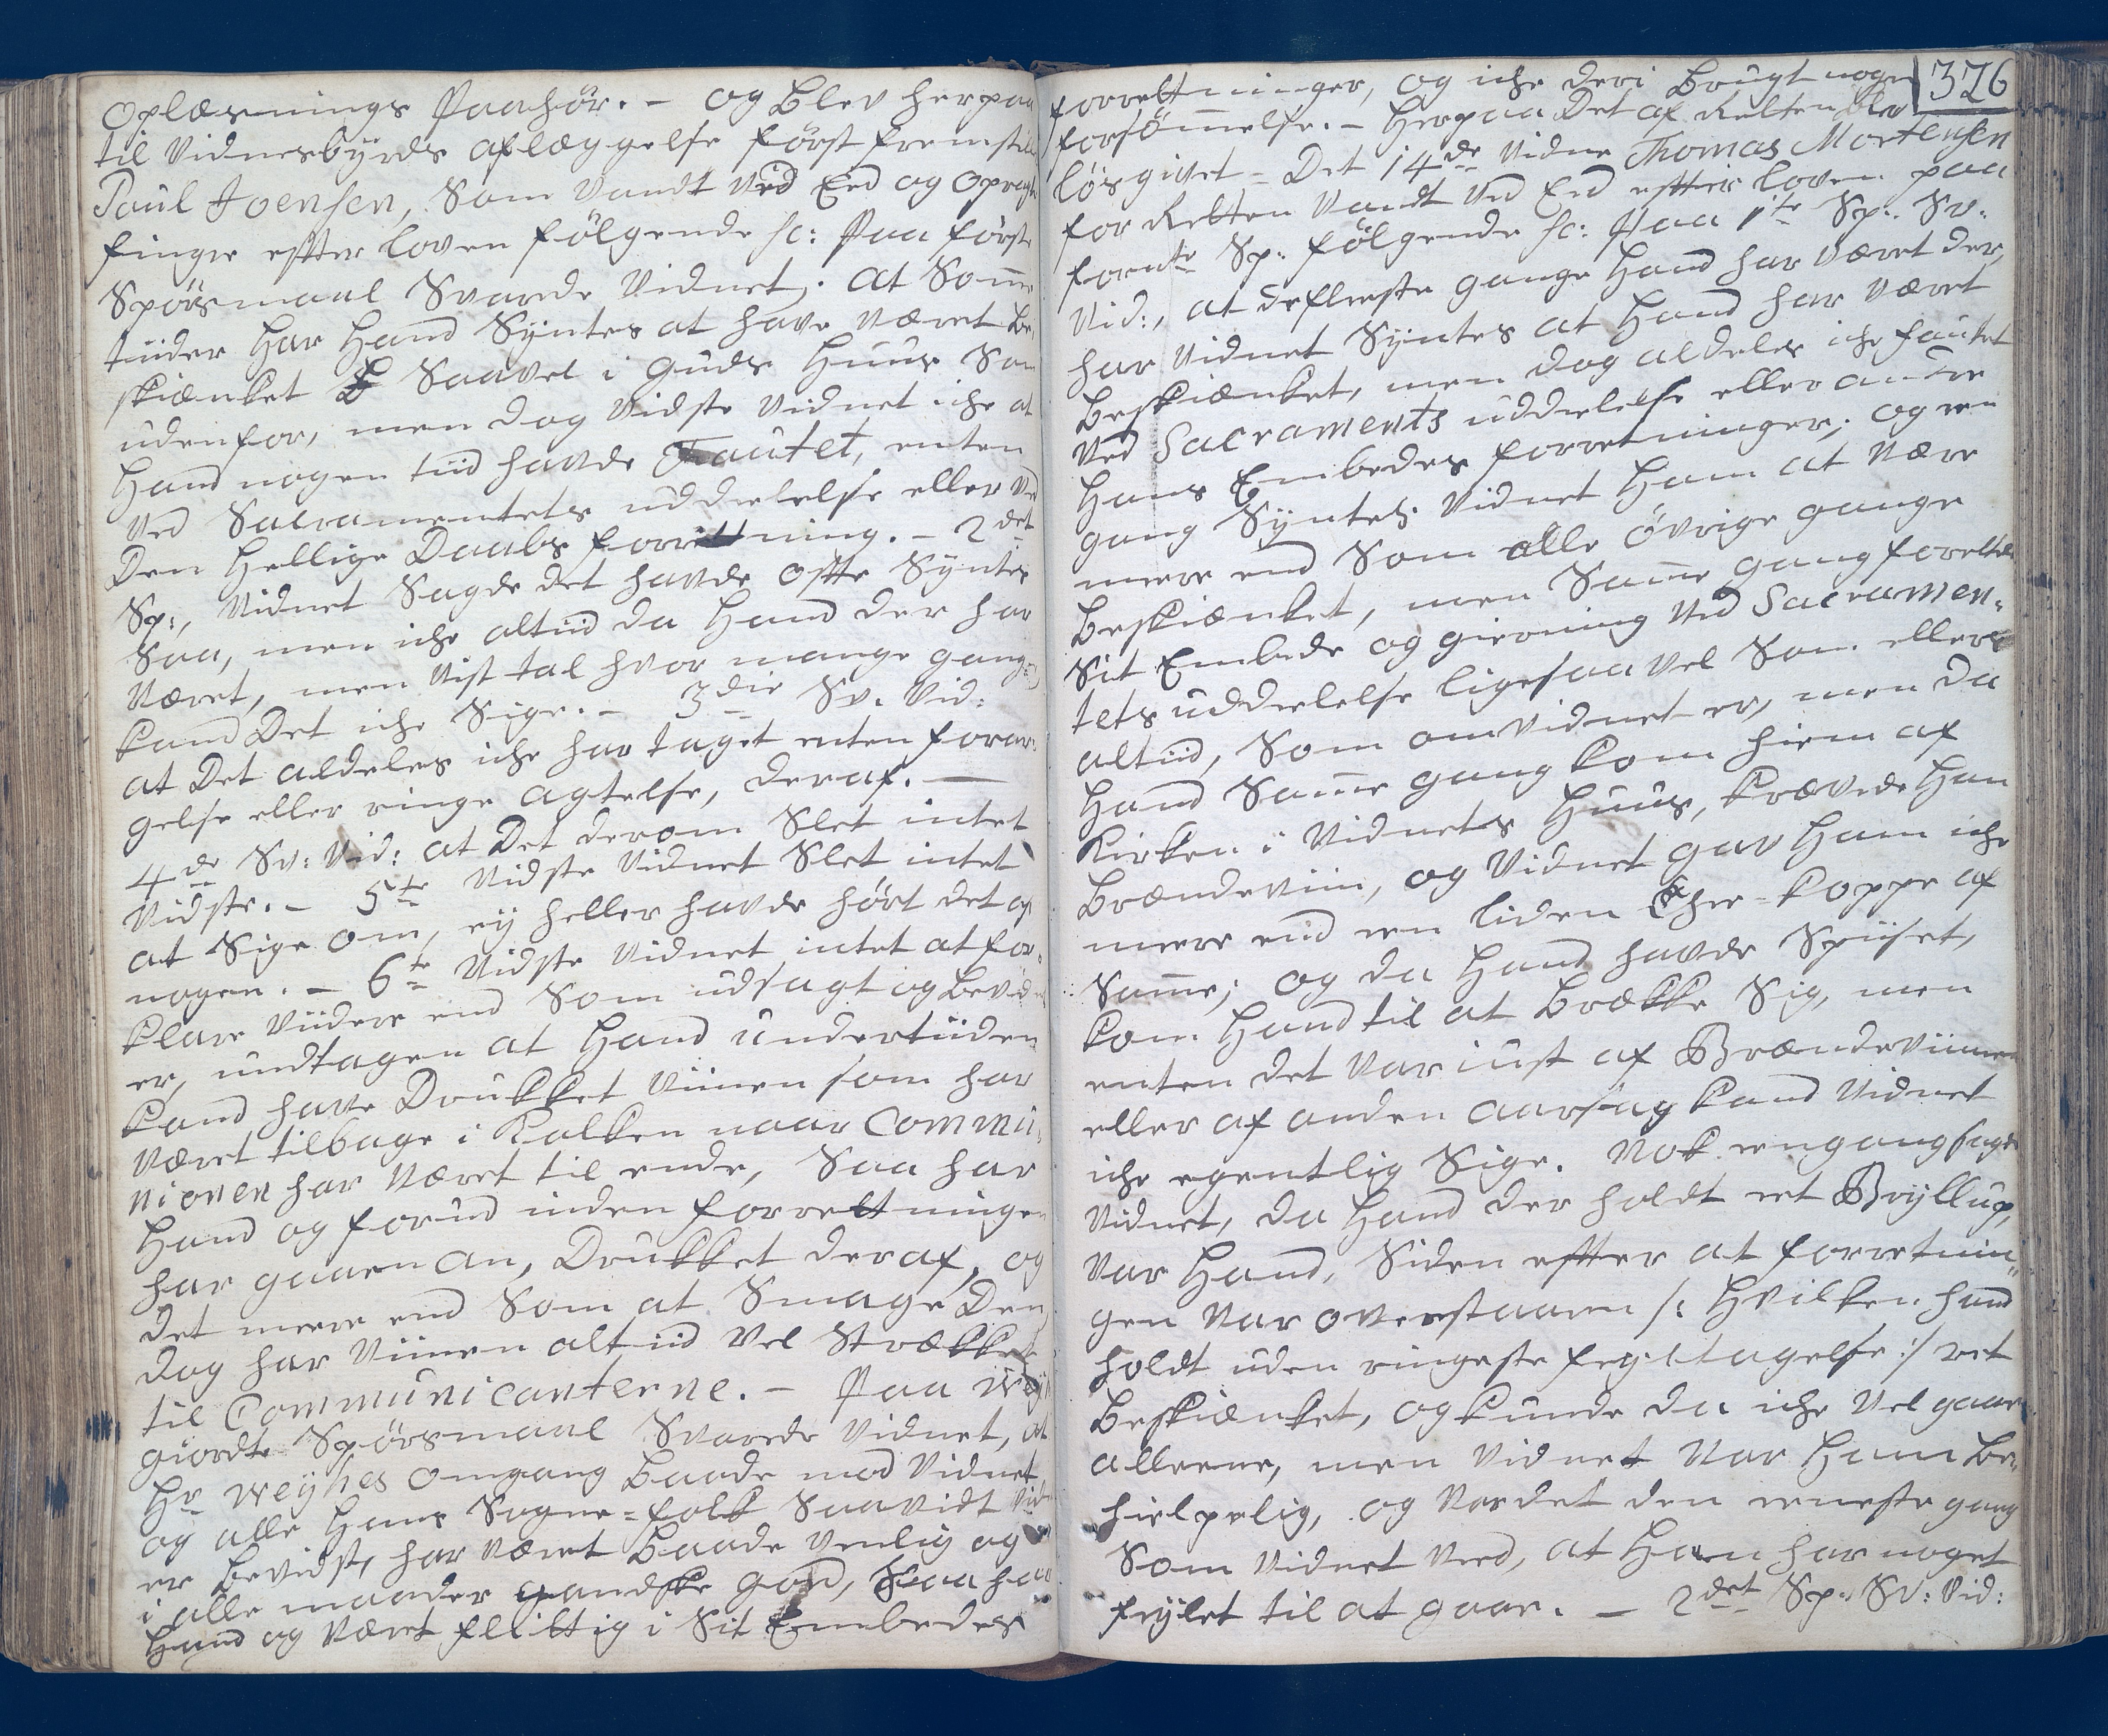 Oplæsnings Paahör. – og blev herpaa
til Vidnesbyrds aflæggelse först fremstil
Poul Joensen, Som Vandt Ved Eed og opragte
finger efter loven fölgende sc: Paa förste
Spörsmaal Svarede Vidnet. at Som̄e
tiider har Hand Syntes at have været be¸
skiænket Saavel i Guds Huus Som
udenfor, men dog Vidste Vidnet iche at
Hand nogen tiid havde Fautet, enten
Ved Sacramentets uddeelelse eller Ved
Den Hellige Daabs forrettning. – 2det
Sp:, Vidnet Sagde det havde ofte Syntes
Saa, men iche altiid da Hand der har
Været, men Vist tal hvor mange gange
kand Det iche Sige. – 3die Sv. Vid:
at Det aldeles iche har taget enten forar¸
gelse eller ringe agtelse, deraf. –
4de Sv: Vid: at Det derom Slet intet
Vidste. – 5te Vidste Vidnet Slet intet
at Sige om, ey heller havde hört det af
nogen. – 6te Vidste Vidnet intet at for¸
klare Viidere end Som udsagt og bevidnet
er, undtagen at Hand undertiiden
kand have Drukket Viinen som har
Været tilbage i Kalken naar Commu¸
nionen har Været til ende, Saa har
Hand og forud inden forrettningen
har gaaen an, Drukket deraf, og
det meere end Som at Smage Den
dog har Viinen altiid Vel Strækket
til Communicanterne. – Paa Wey
giordte Spörsmaal Svarede Vidnet, at
Hr Weyhes omgang baade mod Vidnet
og alle Hans Sogne=folk Saavidt Vid
er bevidst, har Været baade Venlig og
i alle maader gandske god, Saa har
Hand og Været flittig i Sit Embedes
326
forrettninger, og iche deri brugt nogen
forsömmelse. – Herpaa Det af Retten blev
lösgivet = Det 14de Vidne Thomas Mortensen
for Retten Vandt Ved Eed efter loven paa
fornte Sp: fölgende sc: Paa 1te Sp: Sv:
Vid:, at de fleeste gange Hand har Været der,
har Vidnet Syntes at Hand har Været
beskiænket, men dog aldeles iche fautet
Ved Sacraments uddeelelse eller andre
Hans Embedes forretninger; og een
gang Syntes Vidnet Ham at Være
meere end Som alle övrige gange
beskiænket, men Sam̄e gang forrettede
Sit Embede og gierning Ved Sacramen¸
tets uddeelelse ligesaavel Som ellers
altiid, Som omvidnet er, men da
Hand Sam̄e gang kom hiem af
Kirken i Vidnets Huus, krævede Han
Brændeviin, og Vidnet gav Ham iche
meere end een liden Thee=koppe af
Sam̄e; og da Hand havde Spiiset,
kom Hand til at brække Sig, men
enten det Var iust af Brændeviinen
eller af anden aarsag kand Vidnet
iche egentlig Sige. Nok eengang sagde
Vidnet, da Hand der holdt eet Bryllup,
Var Hand, Siden efter at forretnin¸
gen Var overstaaen /: hvilken hand
holdt uden ringeste feyltagelse :/ ret
beskiænket, og kunde da iche Vel gaae
alleene, men Vidnet Var Ham be¸
hielpelig, og Var det den eeneste gang
Som Vidnet Veed, at Ham har noget
feylet til at gaae. – 2det Sp: Sv: Vid: